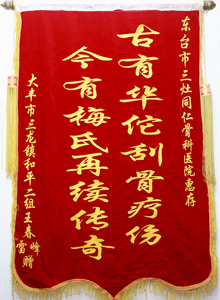 东台市三灶同仁骨科医院惠存
古有华佗刮骨疗伤
今有梅氏再续传奇
大丰市三龙镇和平二组王春峰雷赠